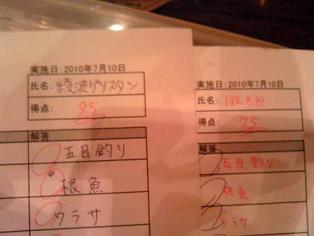 実施日:2010年7月10日
氏名:綾波グリスタン
得点: 95
解答
五目釣り
根魚
ワラサ
実施日:2010年7月10日
氏名:
得点: 75
解答
五目釣り
根魚
ワラサ